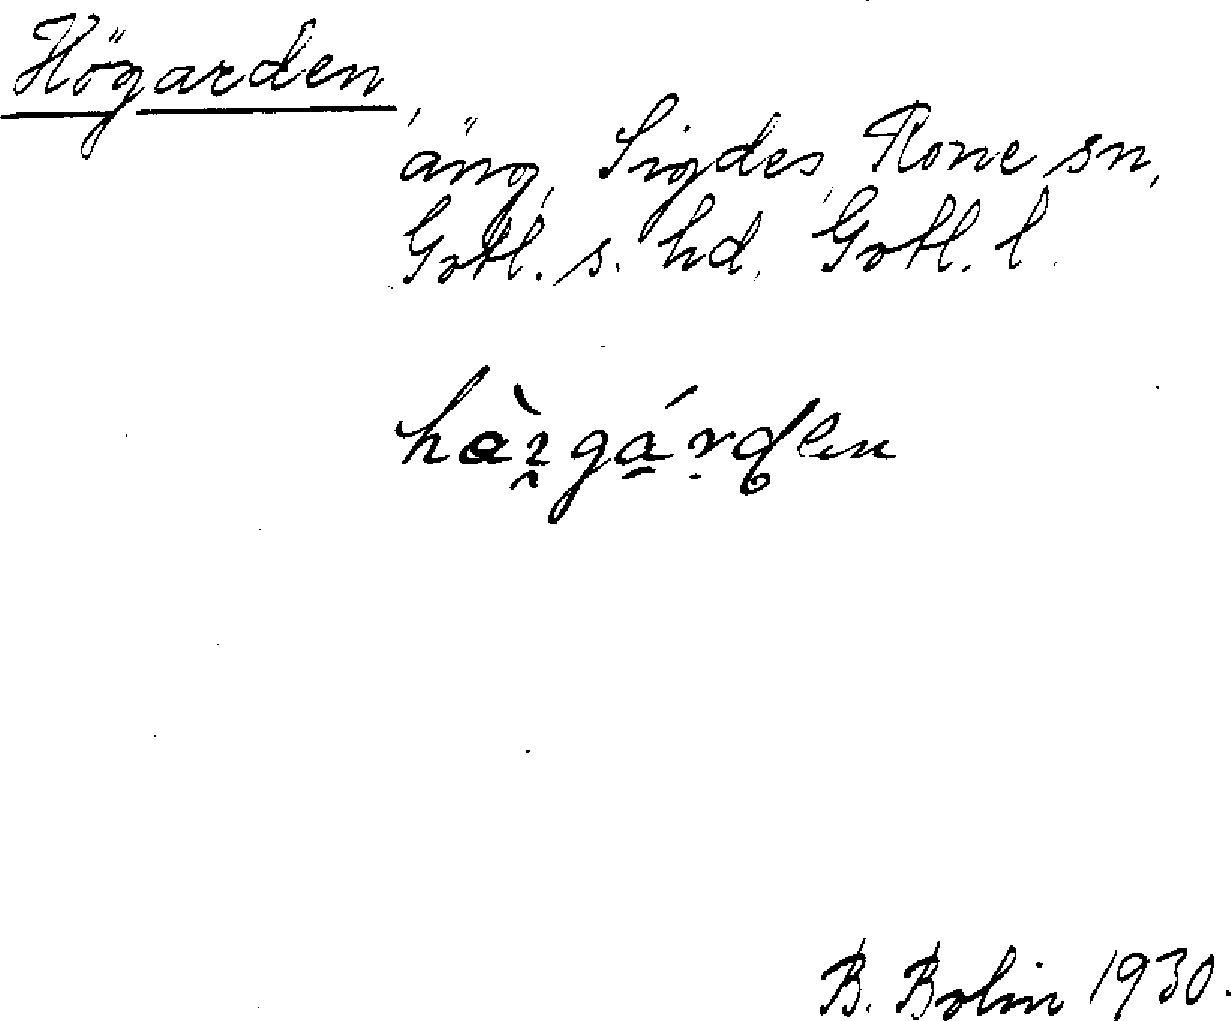 Högarden,
äng, Sigdes, Rone sn,
Gotl. s. hd, Gotl. l.
B. Bolin 1930.